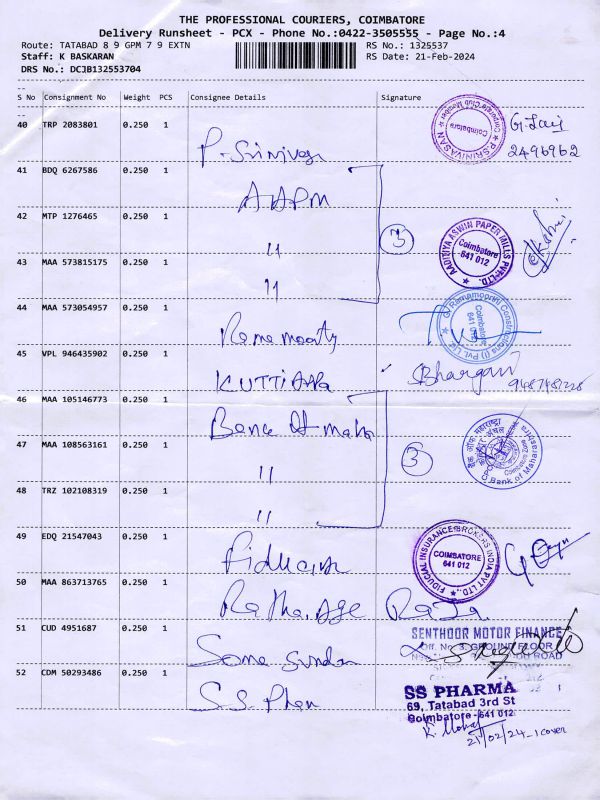 THE PROFESSIONAL COURIERS, COIMBATORE
Delivery Runsheet - PCX - Phone No.:0422-3505555 - Page No.:4
Route: TATABAD 8 9 GPM 7 9 EXTN
RS No.: 1325537
Staff: K BASKARAN
RS Date: 21-Feb-2024
DRS No.: DCJB132553704
S No Consignment No Weight PCS Consignee Details Signature
40 TRP 2083801 0.250 1
P. Srinivasan
Corporate Club Member
Coimbatore
* P.SRINIVASAN *
2496962
41 BDQ 6267586 0.250 1
AAPM
42 MTP 1276465 0.250 1
"
3
AADITIYA ASWIN PAPER MILLS PVT. LTD.
Coimbatore
641 012
43 MAA 573815175 0.250 1
"
44 MAA 573054957 0.250 1
Ramamoorty
Constructions (I) Pvt. Ltd.
Coimbatore
641 012
45 VPL 946435902 0.250 1
KUTTI
Bhargavi
46 MAA 105146773 0.250 1
Bank of maha
47 MAA 108563161 0.250 1
"
3
बैंक ऑफ महाराष्ट्र
Bank of Maharashtra
48 TRZ 102108319 0.250 1
"
49 EDQ 21547043 0.250 1
FIDUCIAL INSURANCE BROKERS INDIA PVT LTD.
COIMBATORE
641 012
50 MAA 863713765 0.250 1
Raja
51 CUD 4951687 0.250 1
Soma Sundar
SENTHOOR MOTOR FINANCE
Off. No 3, GROUND FLOOR
ROAD
52 CDM 50293486 0.250 1
S.S. Phar
SS PHARMA
69, Tatabad 3rd St
Coimbatore-641 012
21/02/24 1 cover